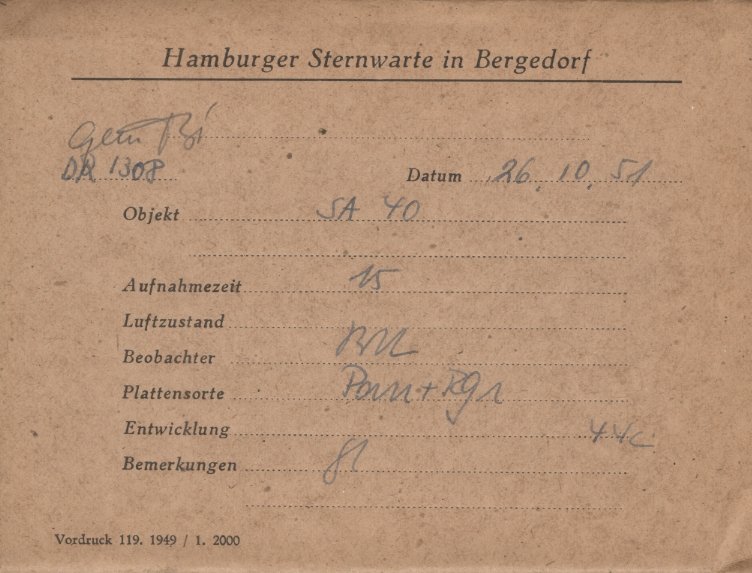 Hamburger Sternwarte in Bergedorf
DR 1308
Datum 26. 10. 51
Objekt SA 40
Aufnahmezeit 15
Luftzustand
Beobachter
Plattensorte
Entwicklung
Bemerkungen
Vordruck 119. 1949 / 1. 2000